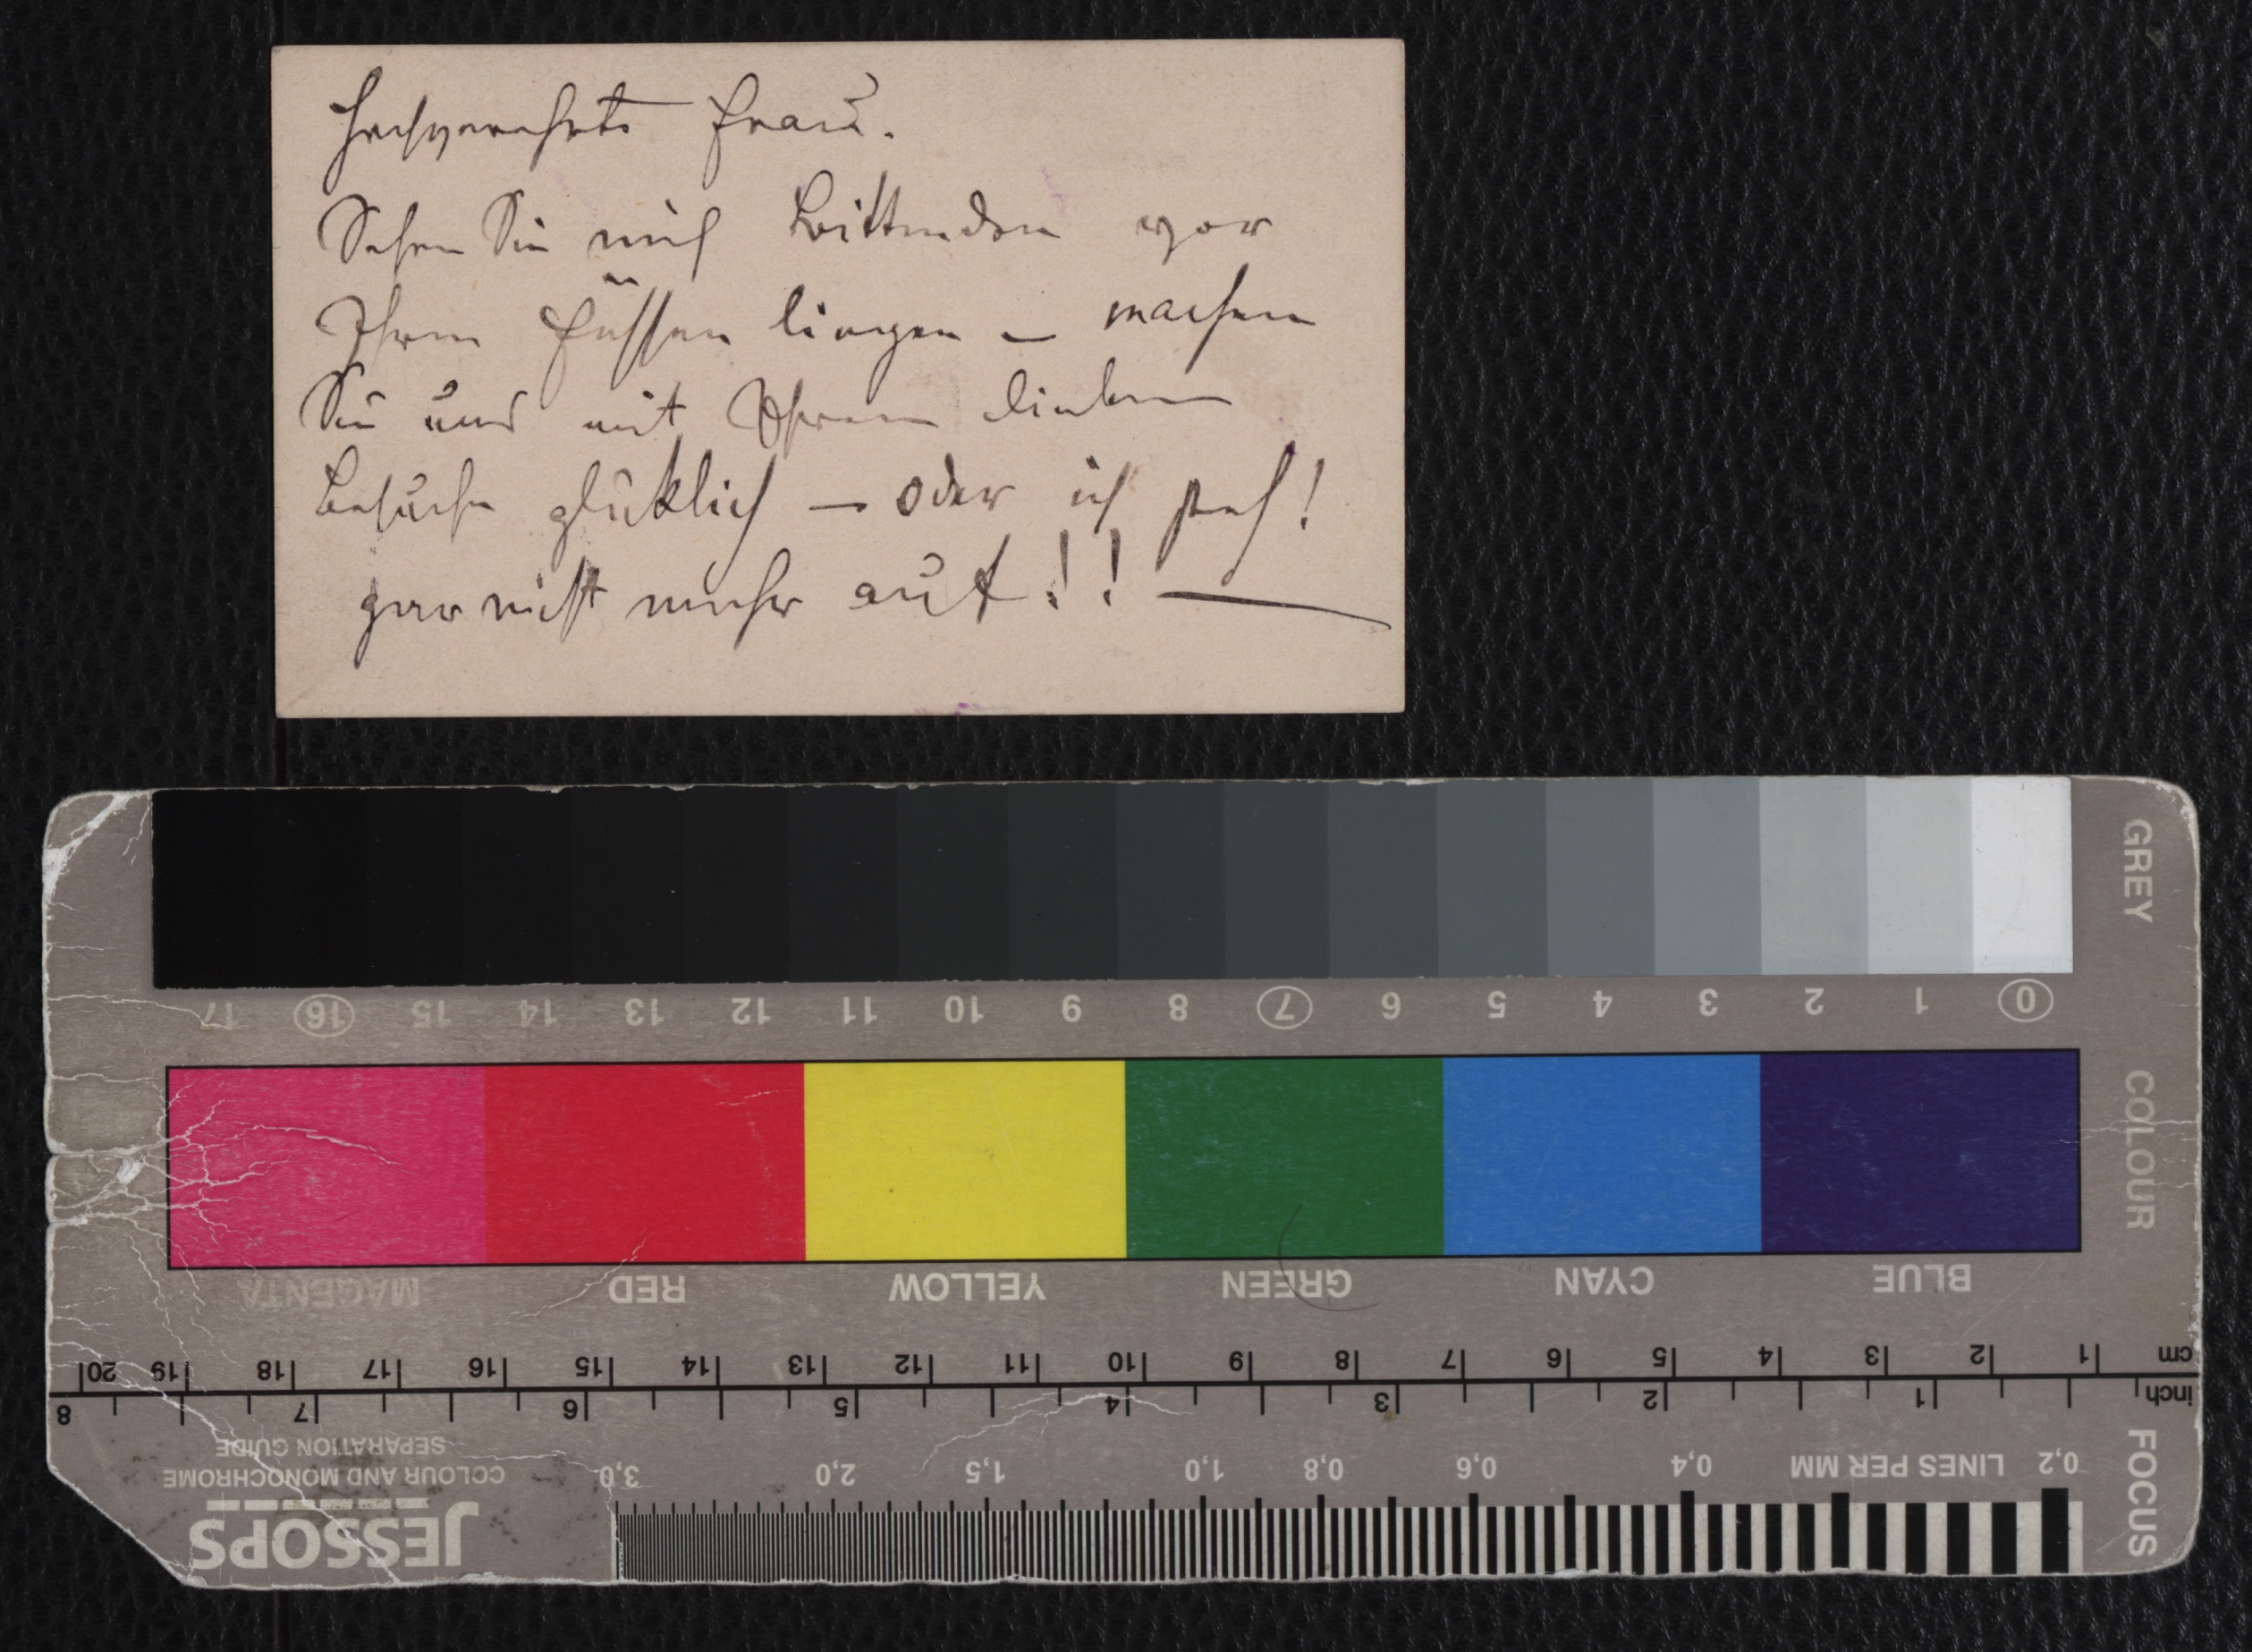 Hochverehrte Frau.
Sehen Sie mich bittenden vor
Ihren Füssen liegen – machen
Sie uns mit Ihrem lieben
Besuche glücklich – oder ich steh!
gar nicht mehr auf!! —
GREY
17 16 15 14 13 12 11 10 9 8 7 6 5 4 3 2 1 0
COLOUR
MAGENTA RED YELLOW GREEN CYAN BLUE
20 19 18 17 16 15 14 13 12 11 10 9 8 7 6 5 4 3 2 1 cm
8 7 6 5 4 3 2 1 inch
3,0 2,0 1,5 1,0 0,8 0,6 0,4 LINES PER MM 0,2
FOCUS
JESSOPS
COLOUR AND MONOCHROME
SEPARATION GUIDE